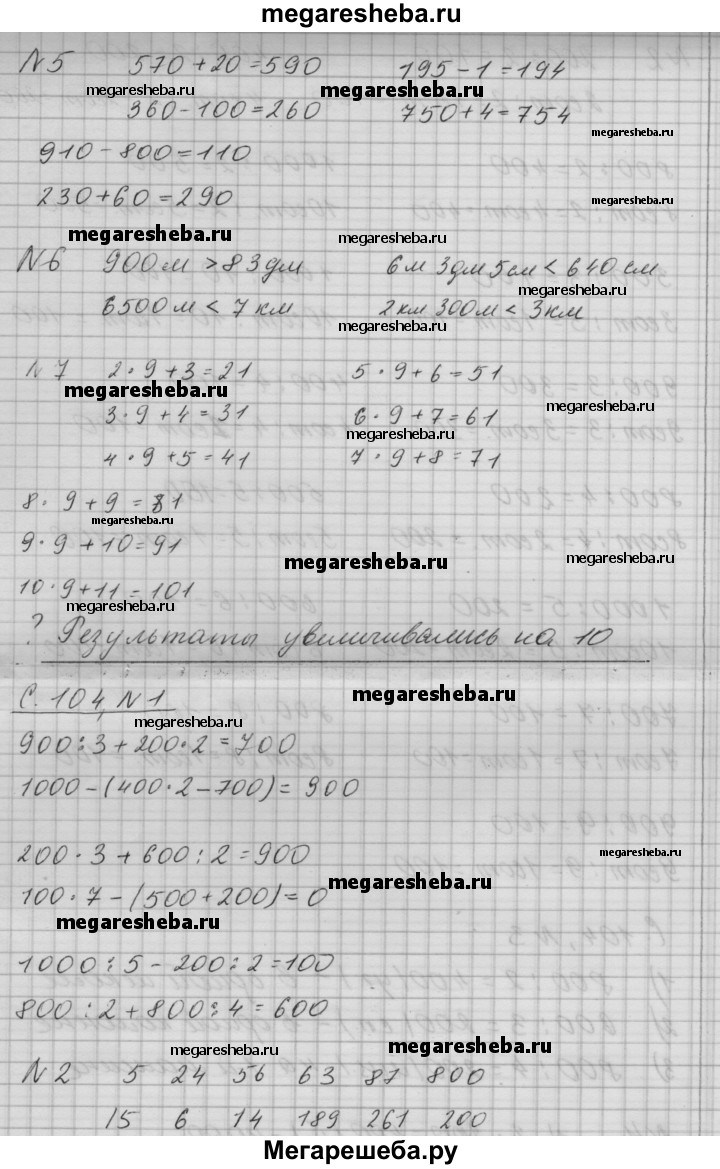 megaresheba.ru
N5 570+20=590 195-1=194
megaresheba.ru megaresheba.ru
360-100=260 750+4=754
megaresheba.ru
910-800=110
230+60=290 megaresheba.ru
megaresheba.ru megaresheba.ru
N6 900м > 83дм 6м 3дм 5см < 640 см
megaresheba.ru
6500м < 7 км 2км 300м < 3км
megaresheba.ru
N7 2·9+3=21 5·9+6=51
megaresheba.ru megaresheba.ru
3·9+4=31 6·9+7=61
megaresheba.ru
4·9+5=41 7·9+8=71
8·9+9=81
megaresheba.ru
9·9+10=91
megaresheba.ru megaresheba.ru
10·9+11=101
megaresheba.ru
? Результаты увеличивались на 10
С. 104, N1 megaresheba.ru
megaresheba.ru
900:3+200·2=700
1000-(400·2-700)=900
200·3+600:2=900 megaresheba.ru
100·7-(500+200)=0 megaresheba.ru
megaresheba.ru
1000:5-200:2=100
800:2+800:4=600
megaresheba.ru megaresheba.ru
N2 5 24 56 63 87 800
15 6 14 189 261 200
Мегарешеба.ру